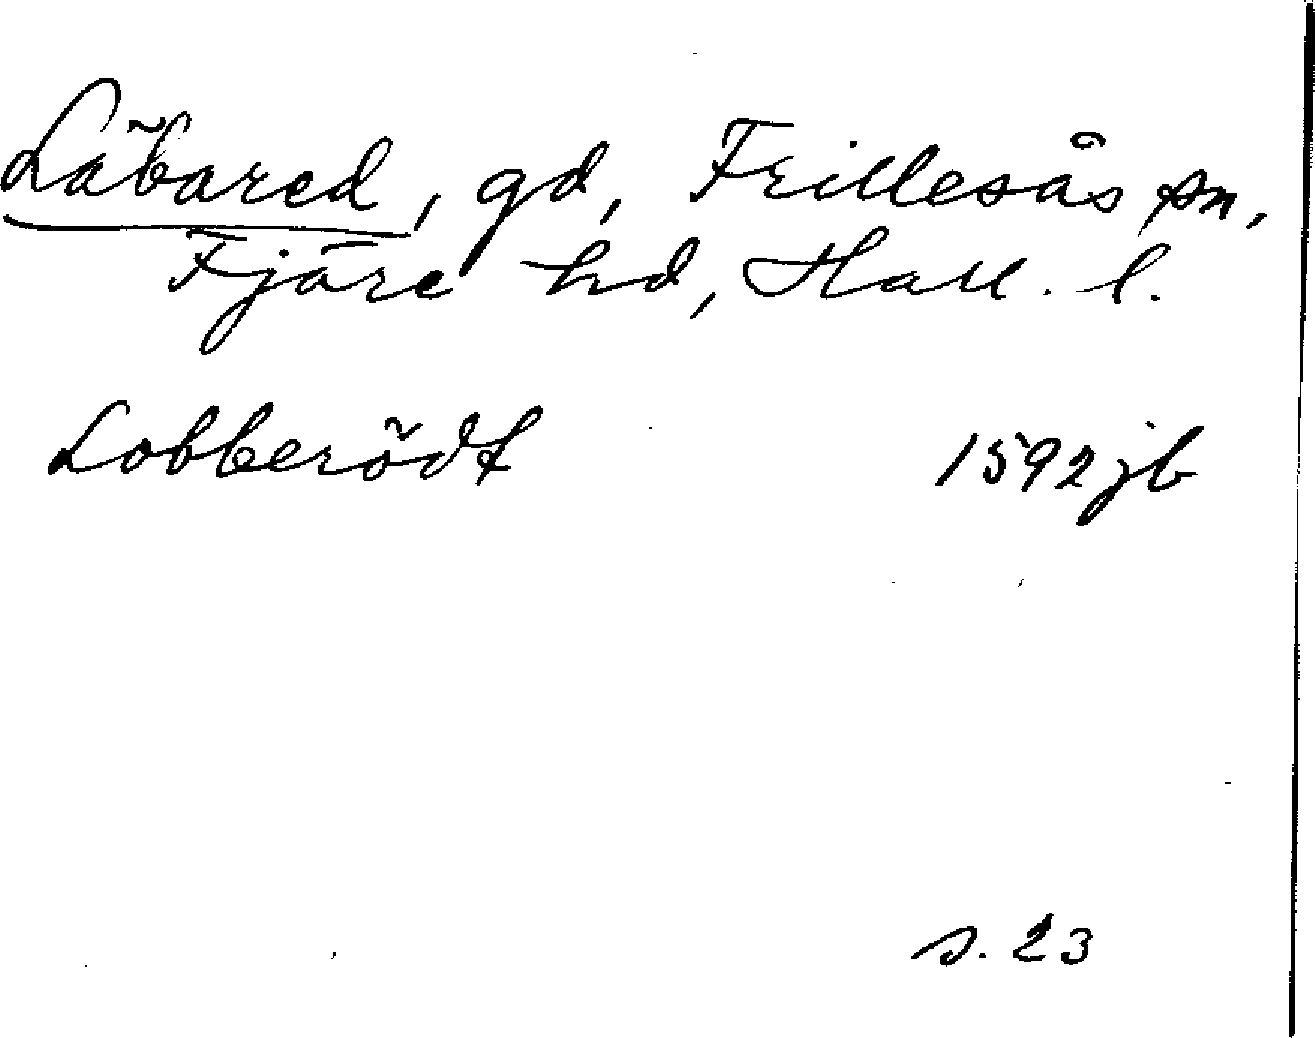 Läbared, gd, Frillesås sn,
Fjäre hd, Hall. l.
Lobberödt 1592 jb
s. 23